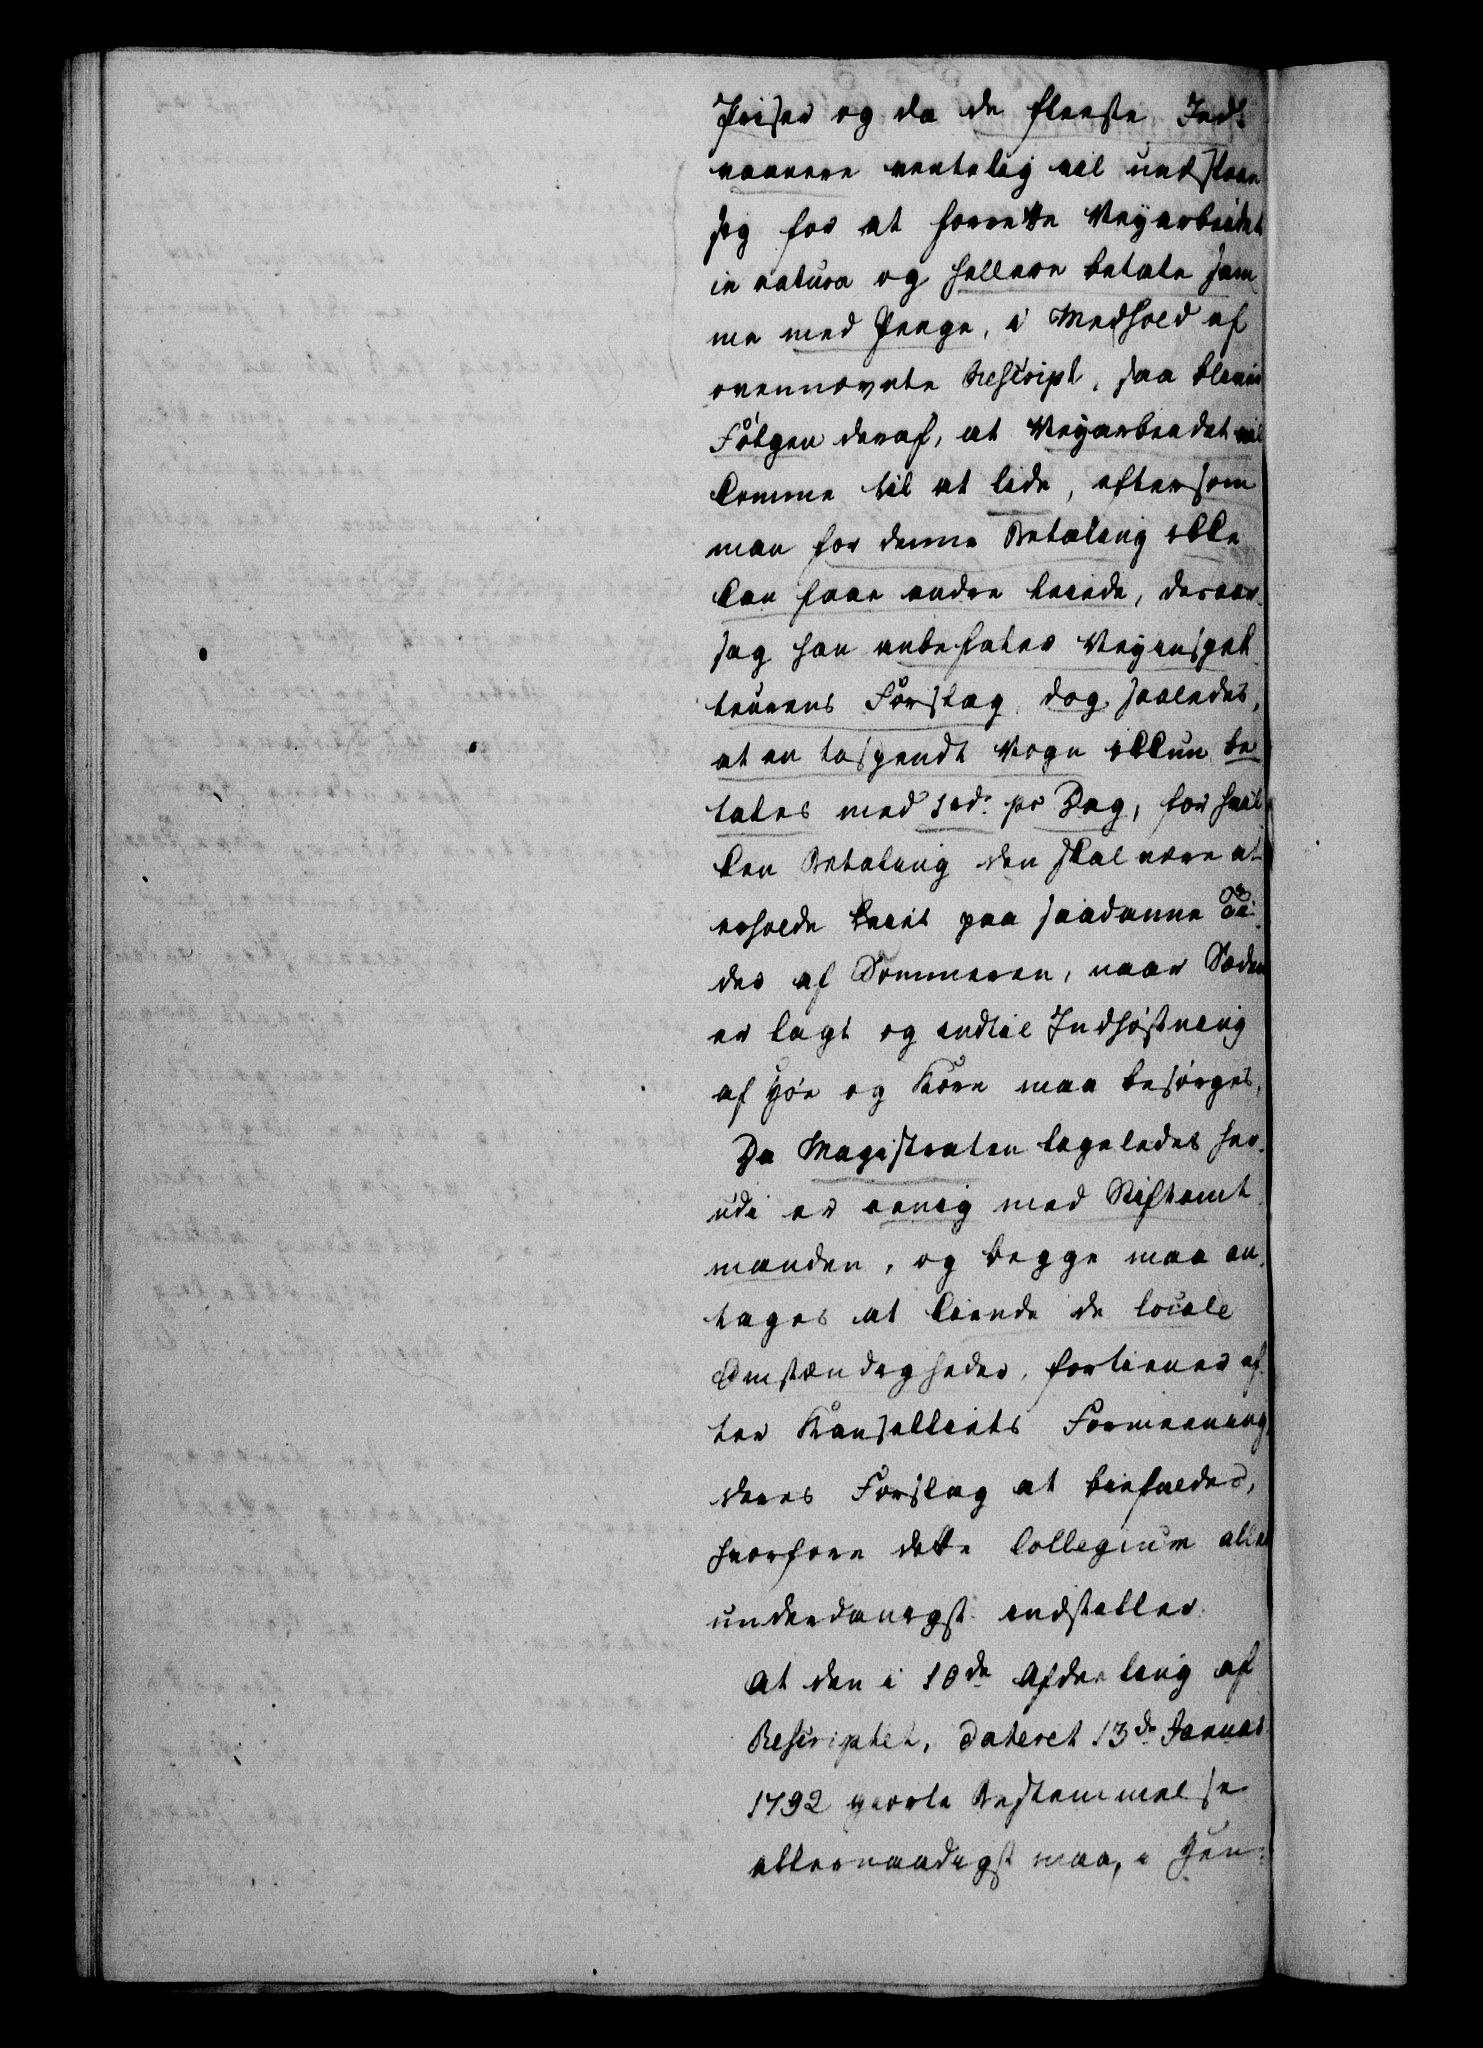 Priser og da de fleeste Ind-
vaanere ventelig vil undslaae
sig for at forrette Veyarbeidet
in natura og hellere betale sam-
me med Penge, i Medhold af
ovennævnte Rescript, saa bliver
Følgen deraf, at Veyarbeidet vil
komme til at lide, eftersom
man for denne Betaling ikke
kan faae andre leiede, desaar-
sag han anbefaler Veyinspek-
teurens Forslag dog saaledes,
at en tospendt Vogn ikkun be-
tales med 1 rd. pr Dag, for hvil-
ken Betaling den skal være at
erholde leiet paa saadanne Tii-
der af Sommeren, naar Sæden
er lagt og indtil Indhøstning
af Høe og Korn maa besørges.
Da Magistraten ligeledes her-
udi er eenig med Stiftamt-
manden, og begge maa an-
tages at kiende de locale
Omstændigheder, fortiener ef-
ter Kanselliets Formeening
deres Forslag at biefaldes,
hvorfore dette Collegium aller
underdanigst indstiller:
At den i 10de Afdeeling af
Rescriptet, dateret 13de Januar
1792 giorte Bestemmelse
allernaadigst maa, i Hen-